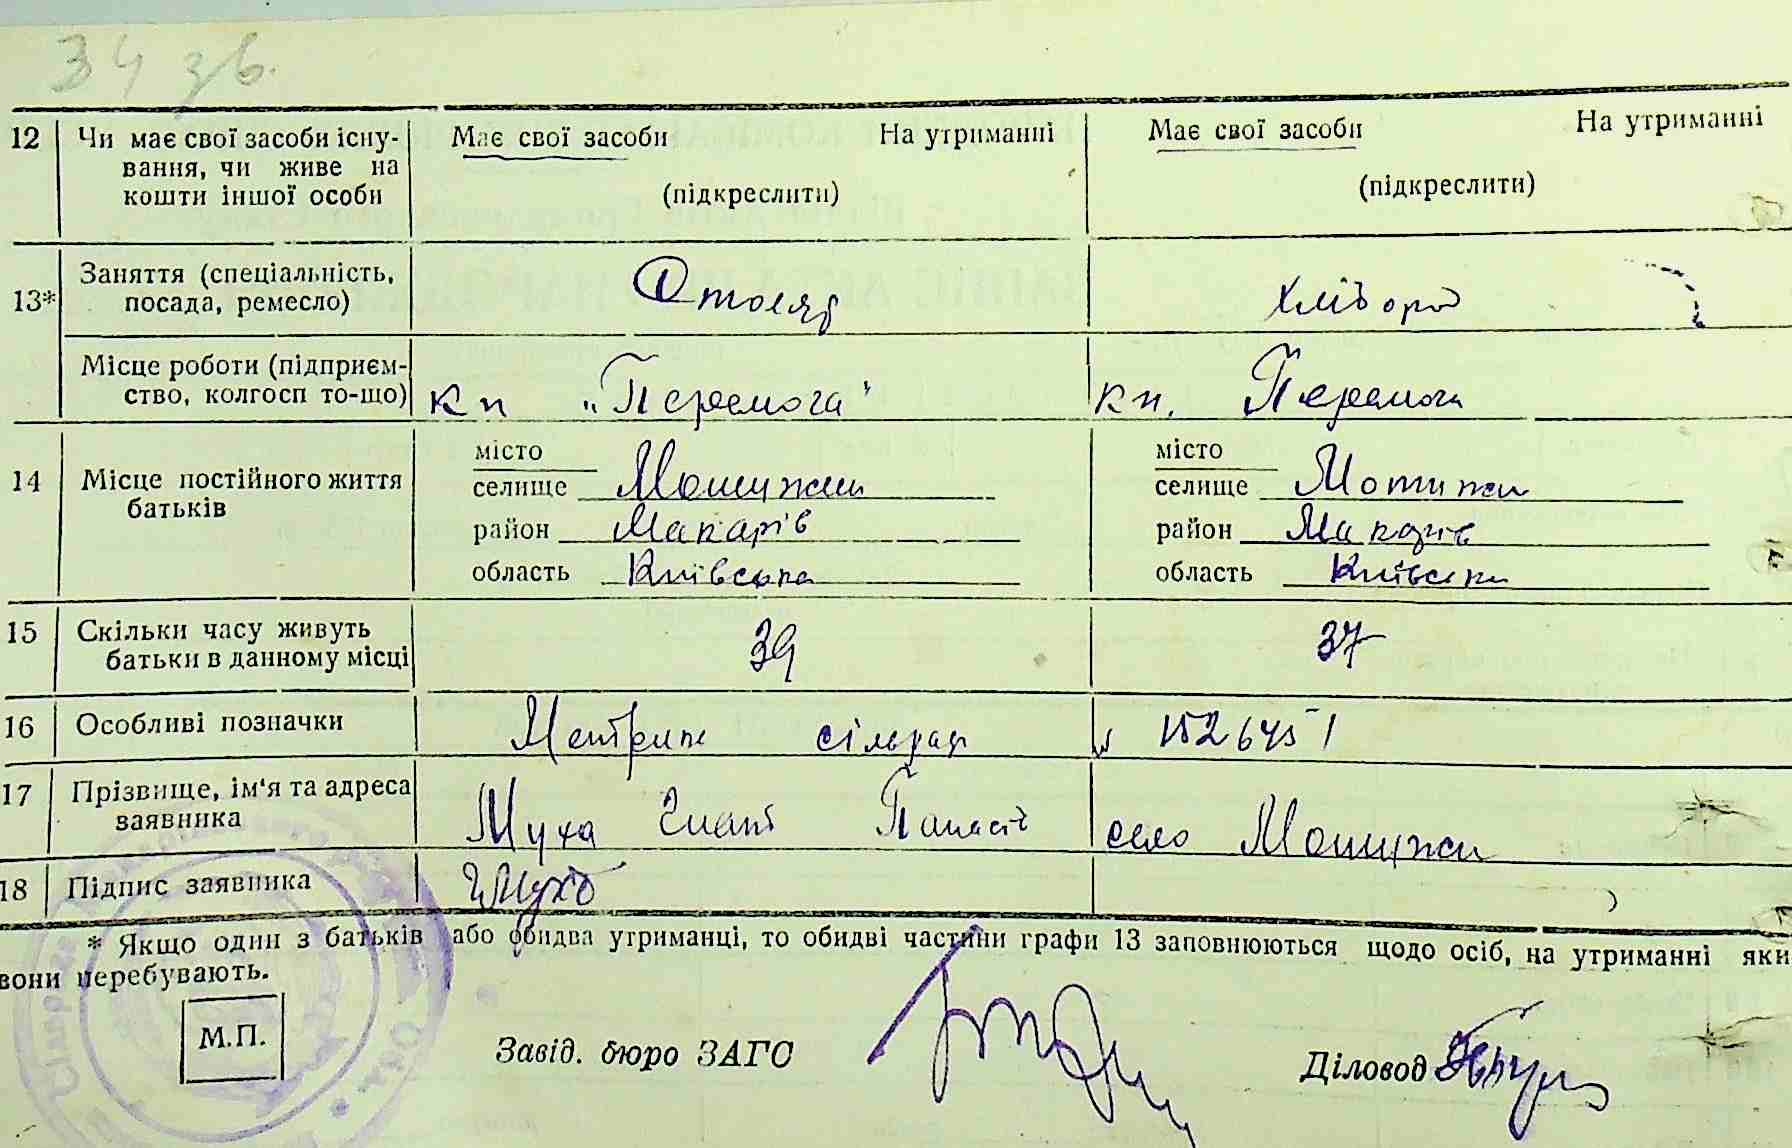 34 зв.
12 Чи має свої засоби існу- Має свої засоби На утриманні Має свої засоби На утриманні
вання, чи живе на
кошти іншої особи (підкреслити) (підкреслити)
13* Заняття (спеціальність, посада, ремесло) Столяр Хлібороб
Місце роботи (підприєм-
ство, колгосп то-що) кп "Перемога" кп. Перемога
14 Місце постійного життя батьків
місто місто
селище Мотижин селище Мотижин
район Макарів район Макарів
область Київська область Київська
15 Скільки часу живуть
батьки в данному місці 39 37
16 Особливі позначки Метрика сільради
17 Прізвище, ім'я та адреса
заявника Муха Гнат Панасів село Мотижин
18 Підпис заявника ГМуха
* Якщо один з батьків або обидва утриманці, то обидві частини графи 13 заповнюються щодо осіб, на утриманні яки
вони перебувають.
М.П. Завід. бюро ЗАГС Діловод